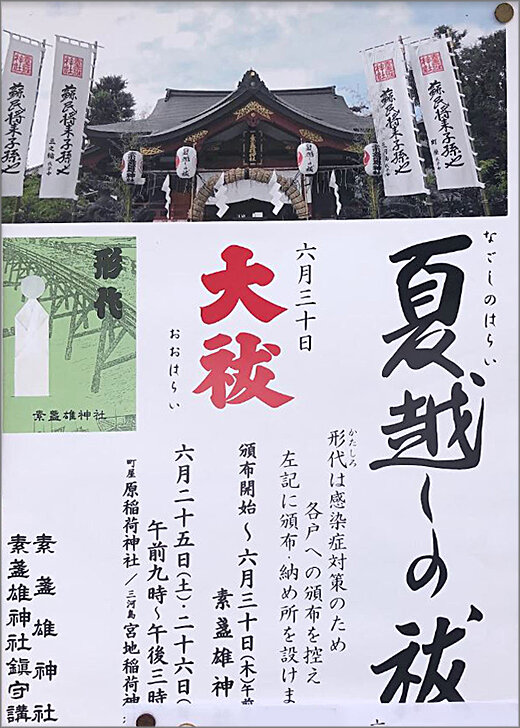 蘇民将来子孫也
蘇民将来子孫也
蘇民将来子孫也
蘇民将来子孫也
なごしのはらい
夏越しの祓
六月三十日
大祓
おおはらい
かたしろ
形代は感染症対策のため
各戸への頒布を控え
左記に頒布・納め所を設けま
頒布開始～六月三十日(木)午前
素盞雄神
六月二十五日(土)・二十六日(
午前九時～午後三時
町屋 原稲荷神社／三河島 宮地稲荷神
形代
素盞雄神社
素盞雄神社
素盞雄神社鎮守講